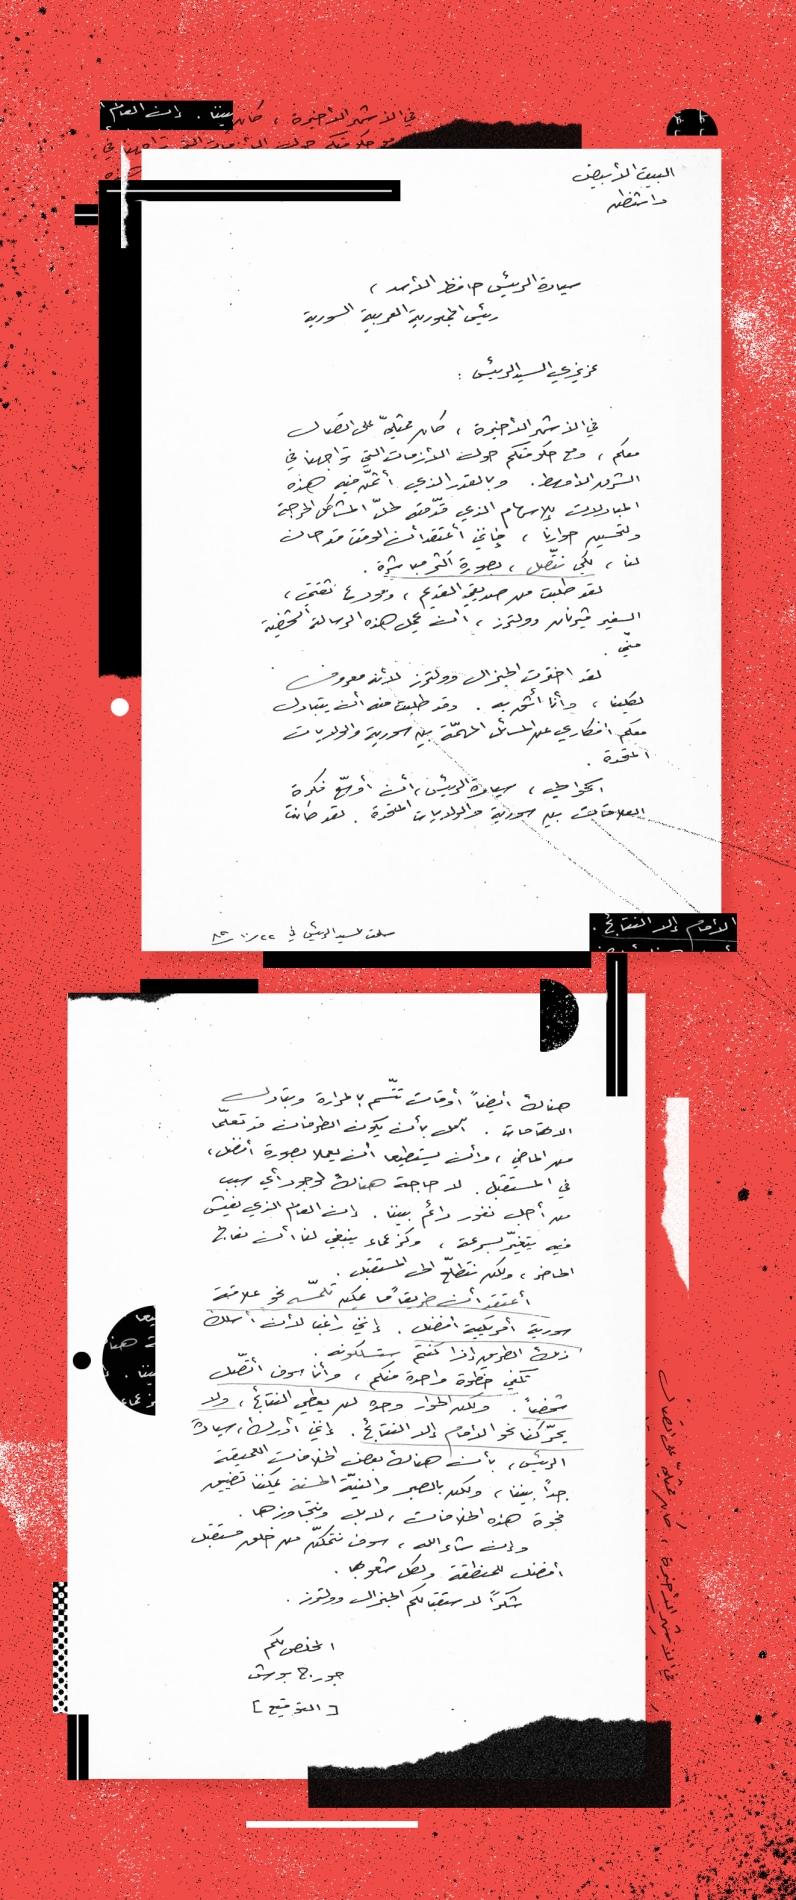 بيننا. إن العالم ا
في الأشهر الأخيرة ، كان
البيت الأبيض
واشنطن
سيادة الرئيس حافظ الأسد ،
رئيس الجمهورية العربية السورية
عزيزي السيد الرئيس :
في الأشهر الأخيرة ، كان ممثليّ على اتصال
معكم ، ومع حكومتكم حول الأزمات التي تواجهنا في
الشرق الأوسط. وبالقدر الذي أثمّن فيه هذه
المبادلات للإسهام الذي قدّمته لحلّ المشاكل الحرجة
ولتحسين حوارنا ، فإنني أعتقد أن الوقت قد حان
لنا ، لكي نتّصل ، بصورة أكثر مباشرة .
لقد طلبت من صديقي القديم ، وموضع ثقتي ،
السفير فيرنان وولترز ، أن يحمل هذه الرسالة الشخصية
منّي .
لقد اخترت الجنرال وولترز لأنه معروف
لكلينا ، وأنا أثق به . وقد طلبت منه أن يتبادل
معكم أفكاري عن المسائل المهمّة بين سورية والولايات
المتحدة .
، سيادة الرئيس ، أن فكرة
العلاقات بين سورية والولايات المتحدة . لقد كانت
سلمت للسيد الرئيس في
الأمام إلا النتائج .
هناك أيضاً أوقات تتّسم بالمرارة وبتبادل
الاتهامات . آمل بأن يكون الطرفان قد تعلّما
من الماضي ، وأن يستطيعا أن يعملا بصورة أفضل ،
في المستقبل . لا حاجة هناك لوجود أي سبب
من أجل نفور دائم بيننا . إن العالم الذي نعيش
فيه يتغيّر بسرعة ، وكزعماء ينبغي لنا أن نعالج
الحاضر ، ولكن نتطلّع إلى المستقبل .
أعتقد أن طريقاً ما يمكن تلمّسه نحو علاقة
سورية أمريكية أفضل . إنني راغب لأن أسلك
ذلك الطريق إذا كنتم ستسلكونه .
تكفي خطوة واحدة منكم ، وأنا سوف أتّصل
شخصياً . ولكن الحوار وحده لن يعطي النتائج ، ولا
يحرّكنا نحو الأمام إلا النتائج . إنني أدرك ، سيادة
الرئيس ، بأن هناك بعض الخلافات العميقة
جداً بيننا ، ولكن بالصبر والنيّة الحسنة يمكننا تضييق
فجوة هذه الخلافات ، لا بل ونتجاوزها .
وإن شاء الله ، سوف نتمكّن من خلق مستقبل
أفضل للمنطقة ولكل شعوبها .
شكراً لاستقبالكم الجنرال وولترز .
المخلص لكم
جورج بوش
[ التوقيع ]
في الأشهر الأخيرة ، كان ممثليّ على اتصال